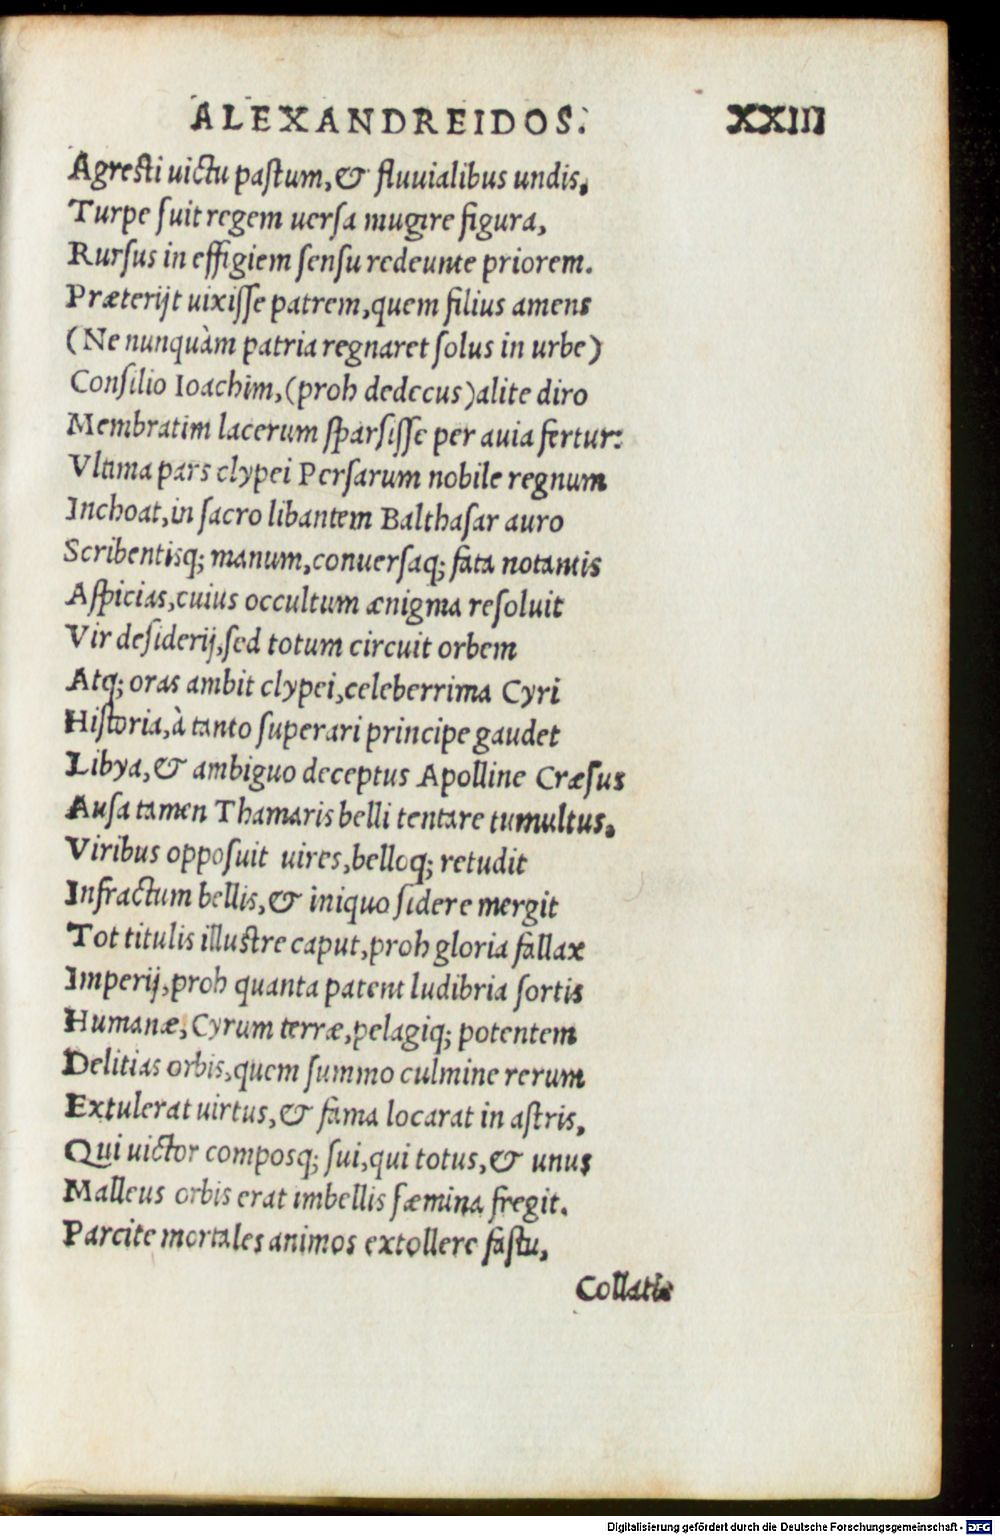 ALEXANDREIDOS. XXIII
Agresti uictu pastum, & fluuialibus undis,
Turpe suit regem uersa mugire figura,
Rursus in effigiem sensu redeunte priorem.
Præterijt uixisse patrem, quem filius amens
(Ne nunquàm patria regnaret solus in urbe)
Consilio Ioachim, (proh dedecus) alite diro
Membratim lacerum sparsisse per auia fertur:
Vltima pars clypei Persarum nobile regnum
Inchoat, in sacro libantem Balthasar auro
Scribentisq; manum, conuersaq; fata notantis
Aspicias, cuius occultum ænigma resoluit
Vir desiderij, sed totum circuit orbem
Atq; oras ambit clypei, celeberrima Cyri
Historia, à tanto superari principe gaudet
Libya, & ambiguo deceptus Apolline Cræsus
Ausa tamen Thamaris belli tentare tumultus,
Viribus opposuit uires, belloq; retudit
Infractum bellis, & iniquo sidere mergit
Tot titulis illustre caput, proh gloria fallax
Imperij, proh quanta patent ludibria sortis
Humanæ, Cyrum terræ, pelagiq; potentem
Delitias orbis, quem summo culmine rerum
Extulerat uirtus, & fama locarat in astris,
Qui uictor composq; sui, qui totus, & unus
Malleus orbis erat imbellis fæmina fregit.
Parcite mortales animos extollere fastu,
Collatis
Digitalisierung gefördert durch die Deutsche Forschungsgemeinschaft - DFG